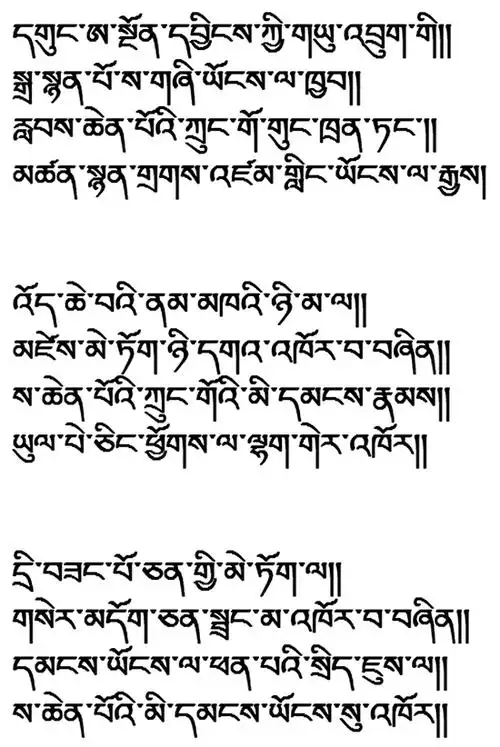 དགུང་ཨ་སྔོན་དབྱིངས་ཀྱི་གཡུ་འབྲུག་གི།།
སྒྲ་སྙན་པོ་ས་གཞི་ཡོངས་ལ་ཁྱབ།།
རླབས་ཆེན་པོའི་ཀྲུང་གོ་གུང་ཁྲན་ཏང་།།
མཚན་སྙན་གྲགས་འཛམ་གླིང་ཡོངས་ལ་རྒྱས།
འོད་ཆེ་བའི་ནམ་མཁའི་ཉི་མ་ལ།།
མཛེས་མེ་ཏོག་ཉི་དགའ་འཁོར་བ་བཞིན།།
ས་ཆེན་པོའི་ཀྲུང་གོའི་མི་དམངས་རྣམས།།
ཡུལ་པེ་ཅིང་ཕྱོགས་ལ་ལྷག་གེར་འཁོར།།
དྲི་བཟང་པོ་ཅན་གྱི་མེ་ཏོག་ལ།།
གསེར་མདོག་ཅན་སྦྲང་མ་འཁོར་བ་བཞིན།།
དམངས་ཡོངས་ལ་ཕན་པའི་སྲིད་ཇུས་ལ།།
ས་ཆེན་པོའི་མི་དམངས་ཡོངས་སུ་འཁོར།།